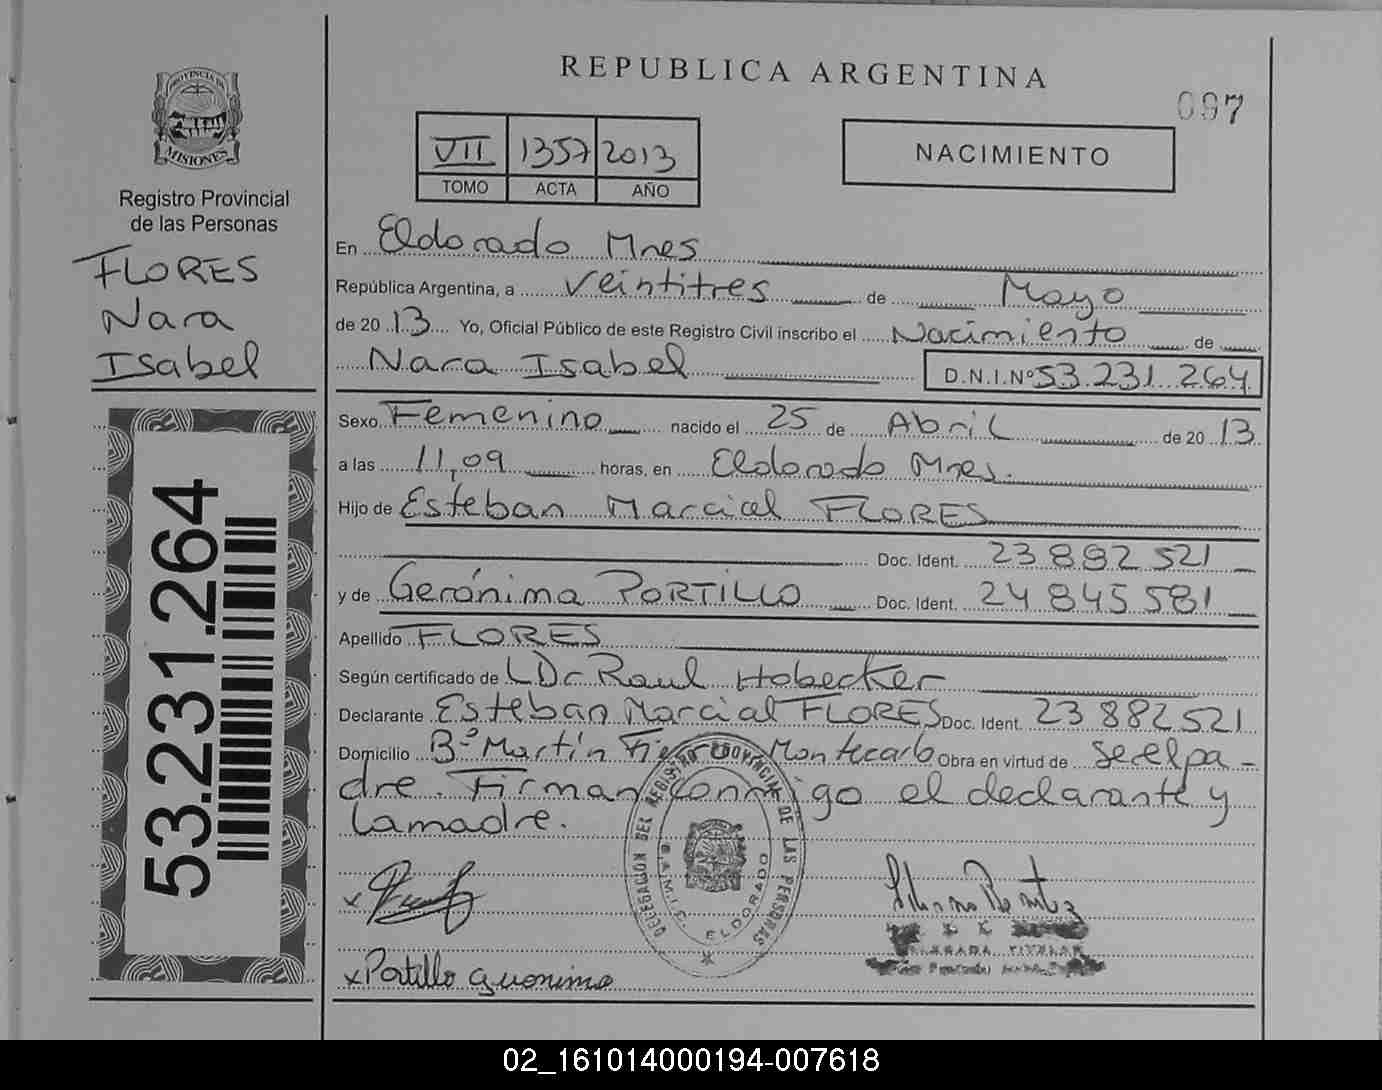 REPUBLICA ARGENTINA
097
PROVINCIA DE
MISIONES
Registro Provincial
de las Personas
FLORES
Nara
Isabel
53.231.264
VII 1357 2013
TOMO ACTA AÑO
NACIMIENTO
En Eldorado Mnes
República Argentina, a veintitres de Mayo
de 20 13 Yo, Oficial Público de este Registro Civil inscribo el Nacimiento de
Nara Isabel D.N.I.Nº 53.231.264
Sexo Femenino nacido el 25 de Abril de 20 13
a las 11,09 horas, en Eldorado Mnes.
Hijo de Esteban Marcial FLORES
Doc. Ident. 23 882 521
y de Gerónima PORTILLO Doc. Ident. 24 845 581
Apellido FLORES
Según certificado de Dr Raul Hobecker
Declarante Esteban Marcial FLORES Doc. Ident. 23 882 521
Domicilio Bº Martín Montecarlo Obra en virtud de ser el pa-
dre. Firman conmigo el declarante y
la madre.
DELEGACION DEL REGISTRO PROVINCIAL DE LAS PERSONAS
ELDORADO
x
x Portillo Geronima
02_161014000194-007618